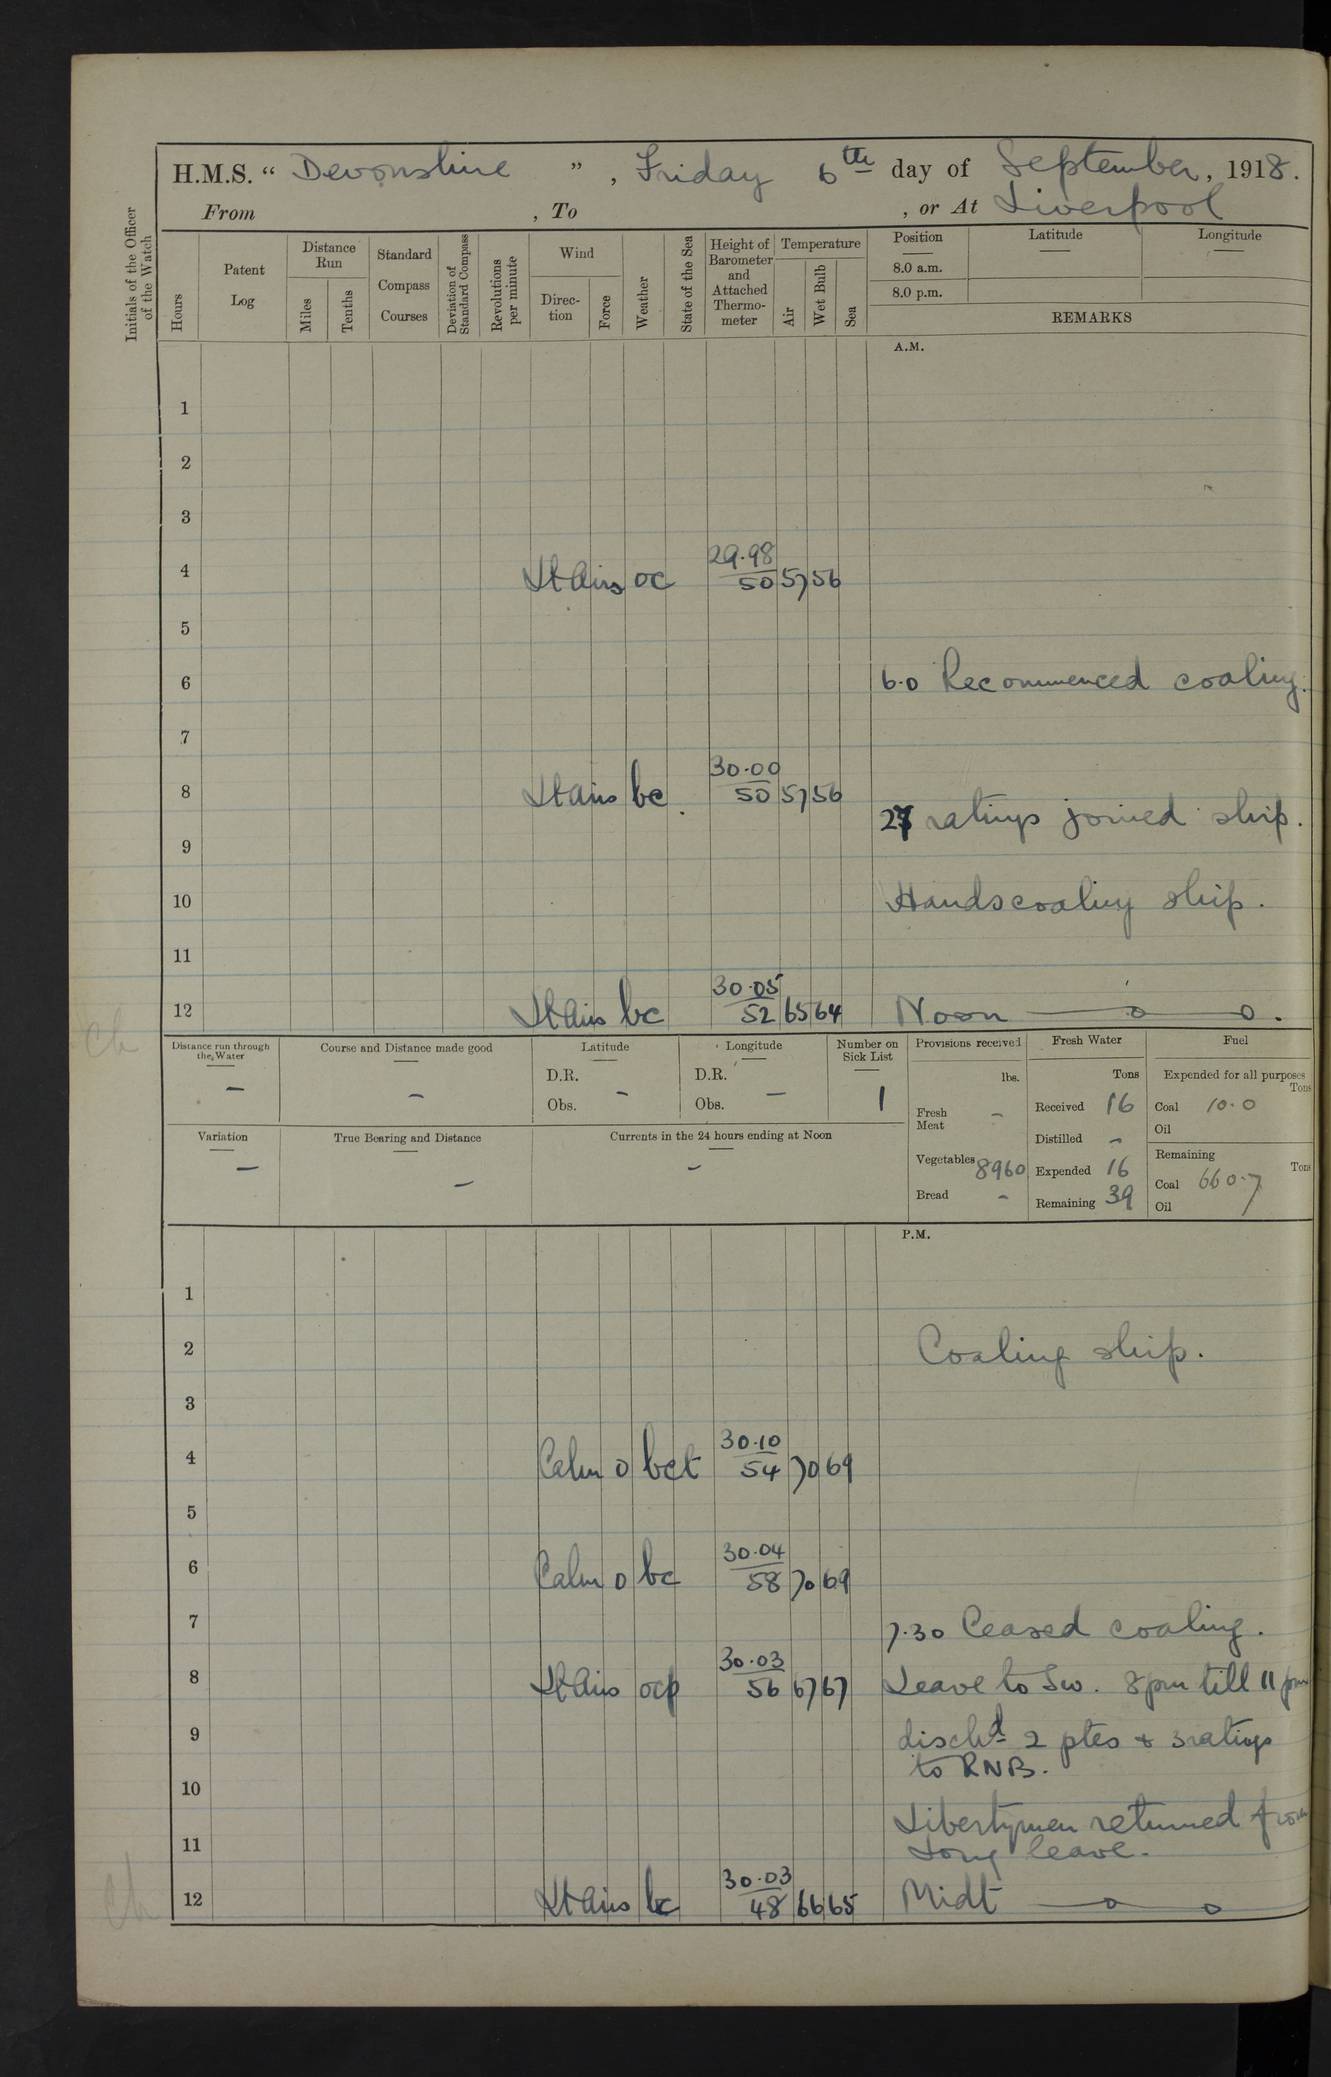 H.M.S. “ Devonshire ” , Friday 6th day of September, 1918.
From , To , or At Liverpool
Initials of the Officer of the Watch
Hours
Patent Log
Distance Run
Miles
Tenths
Standard Compass Courses
Deviation of Standard Compass
Revolutions per minute
Wind
Direction
Force
Weather
State of the Sea
Height of Barometer and Attached Thermometer
Temperature
Air
Wet Bulb
Sea
Position Latitude Longitude
8.0 a.m.
8.0 p.m.
REMARKS
A.M.
1
2
3
4 Lt Airs oc 29.98 50 57 56
5
6 6.0 Recommenced coaling.
7
8 Lt Airs bc 30.00 50 57 56
27 ratings joined ship.
9
10 Hands coaling ship.
11
12 Lt Airs bc 30.05 52 65 64 Noon
Distance run through the Water –
Course and Distance made good –
Latitude D.R. Obs. –
Longitude D.R. Obs. –
Number on Sick List 1
Provisions received lbs.
Fresh Meat –
Vegetables 8960
Bread –
Fresh Water Tons
Received 16
Distilled –
Expended 16
Remaining 39
Fuel
Expended for all purposes Tons
Coal 10.0
Oil
Remaining Tons
Coal 660.7
Oil
Variation –
True Bearing and Distance –
Currents in the 24 hours ending at Noon –
P.M.
1
2 Coaling ship.
3
4 Calm 0 bct 30.10 54 70 69
5
6 Calm 0 bc 30.04 58 70 69
7 7.30 Ceased coaling.
8 Lt Airs ocp 30.03 56 67 67 Leave to Sw. 8pm till 11 pm
9 dischd 2 ptes + 3 ratings
to RNB.
10
Libertymen returned from
11 Long leave.
12 Lt Airs bc 30.03 48 66 65 Midt